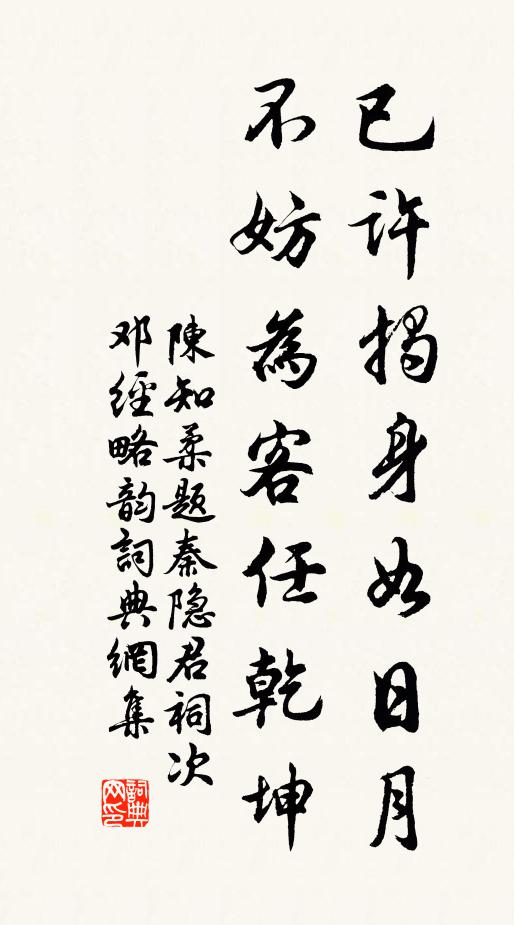 已许揭身如日月
不妨為客任乾坤
陳知柔题秦隐君祠次
邓經略韵詞典網集
詞典